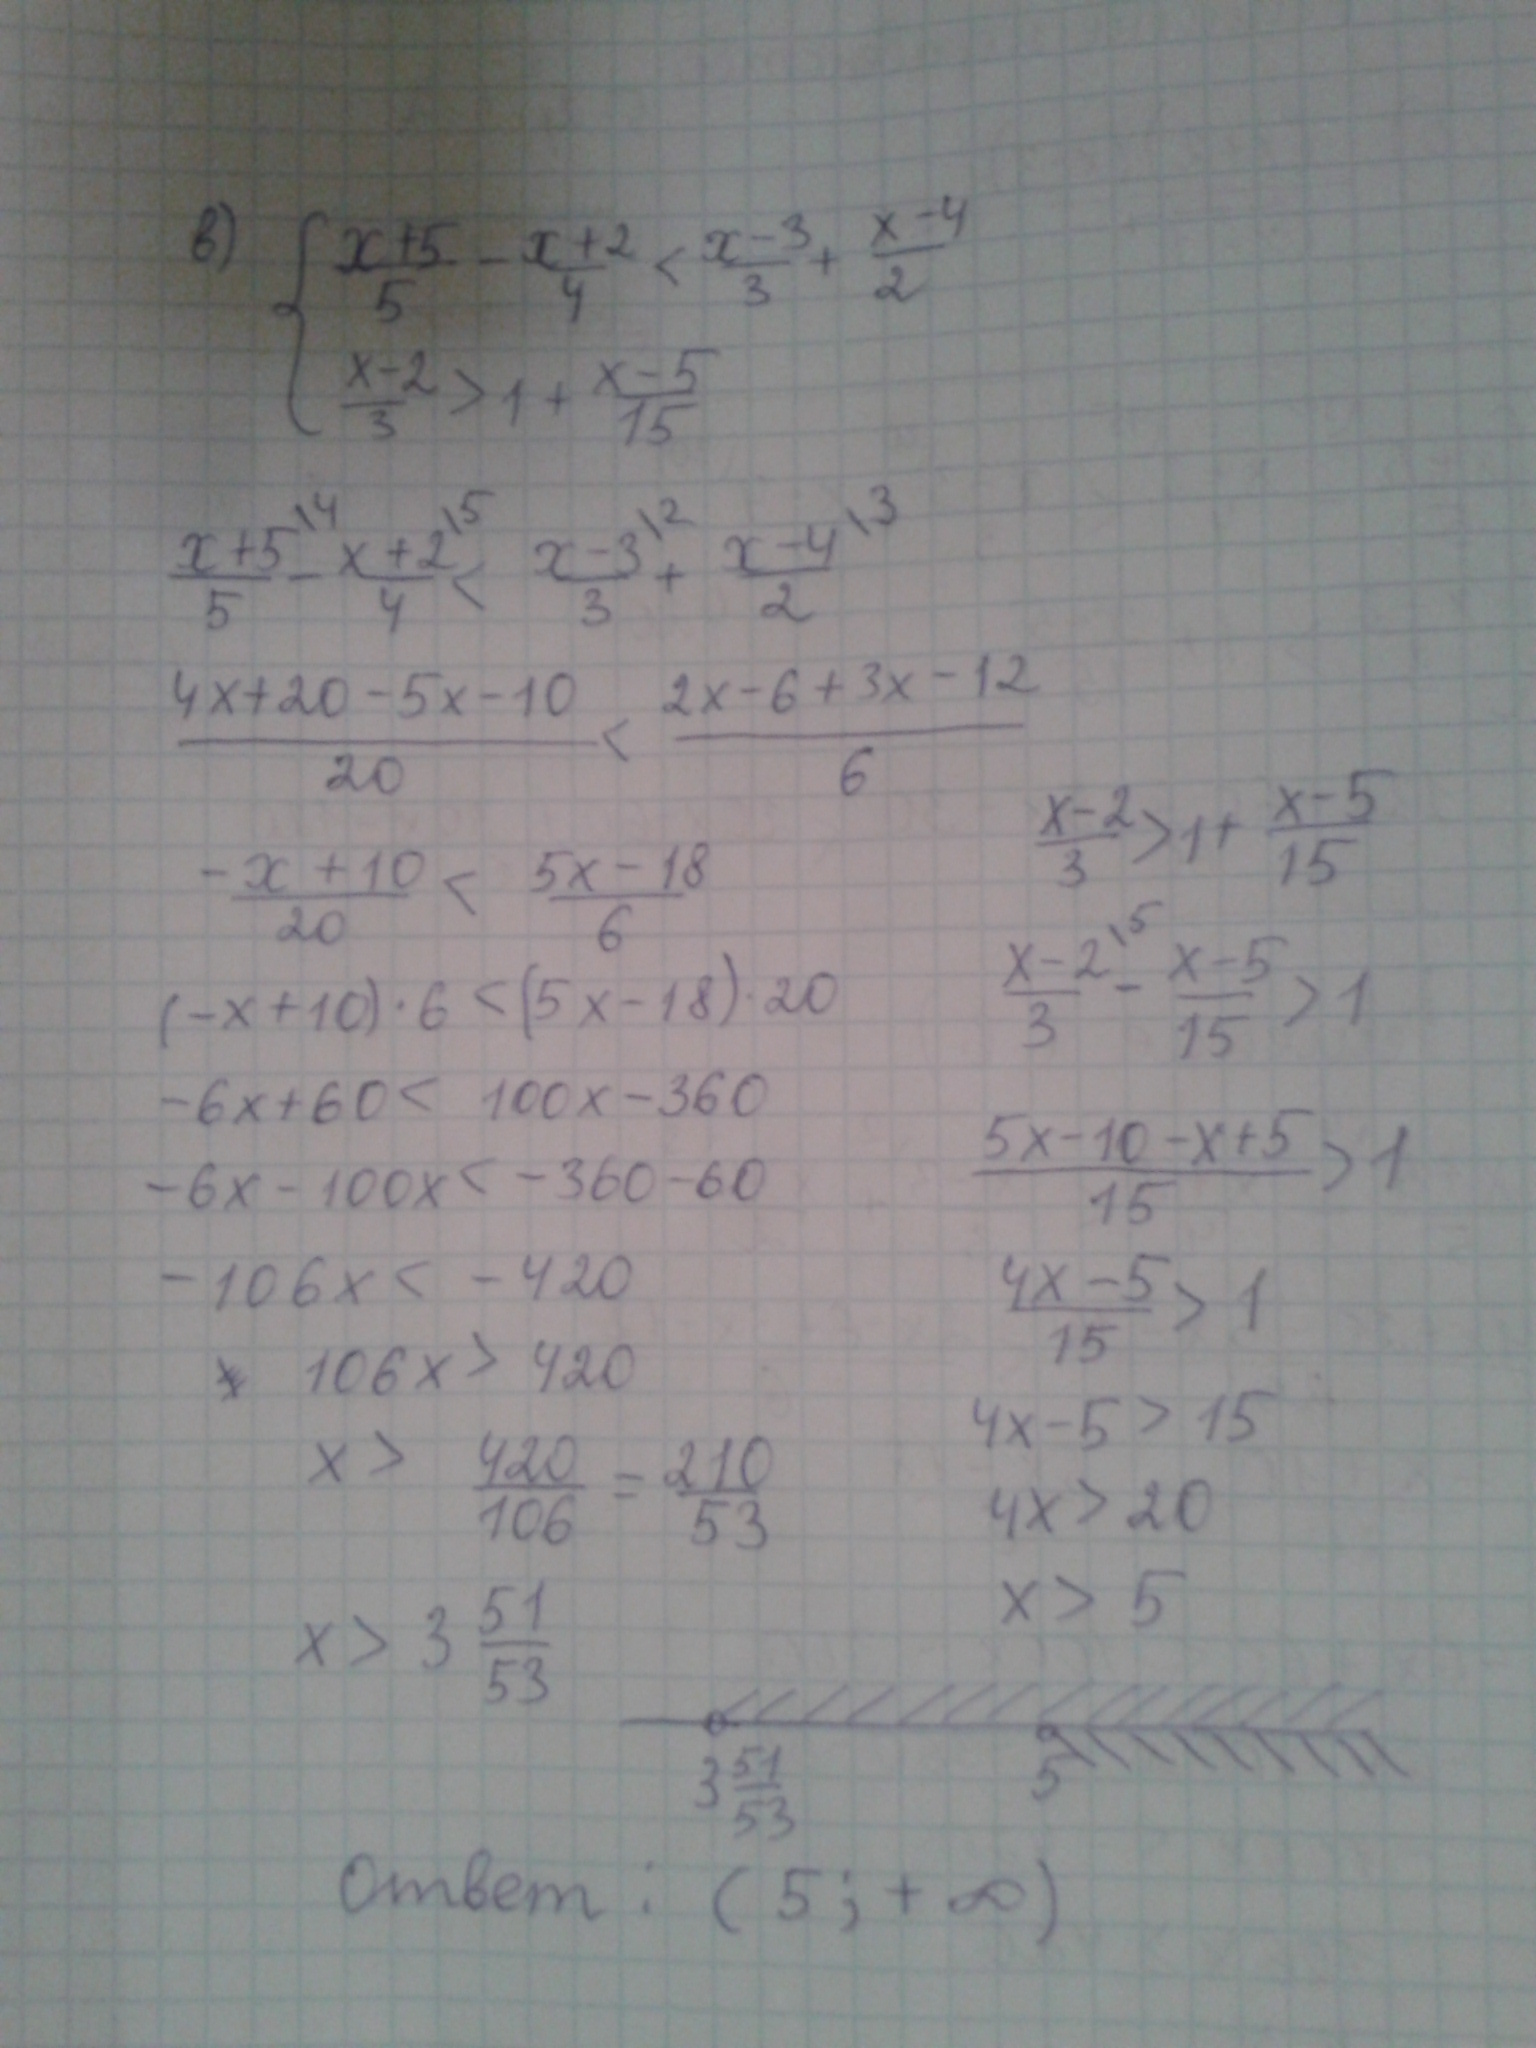 в) { (x+5)/5 - (x+2)/4 < (x-3)/3 + (x-4)/2
(x-2)/3 > 1 + (x-5)/15
(x+5)/5 \4 - (x+2)/4 \5 < (x-3)/3 \2 + (x-4)/2 \3
(4x+20-5x-10)/20 < (2x-6+3x-12)/6
(-x+10)/20 < (5x-18)/6
(-x+10)·6 < (5x-18)·20
-6x+60 < 100x-360
-6x-100x < -360-60
-106x < -420
106x > 420
x > 420/106 = 210/53
x > 3 51/53
(x-2)/3 > 1 + (x-5)/15
(x-2)/3 \5 - (x-5)/15 > 1
(5x-10-x+5)/15 > 1
(4x-5)/15 > 1
4x-5 > 15
4x > 20
x > 5
3 51/53 5
Ответ: (5; +∞)